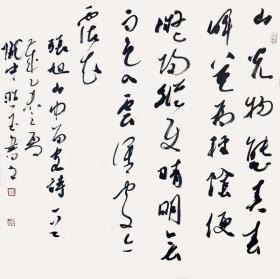 山光物態弄春
暉莫為輕陰便
擬歸縱使晴明無
雨色入雲深處亦
霑衣
張旭山中留客詩一首